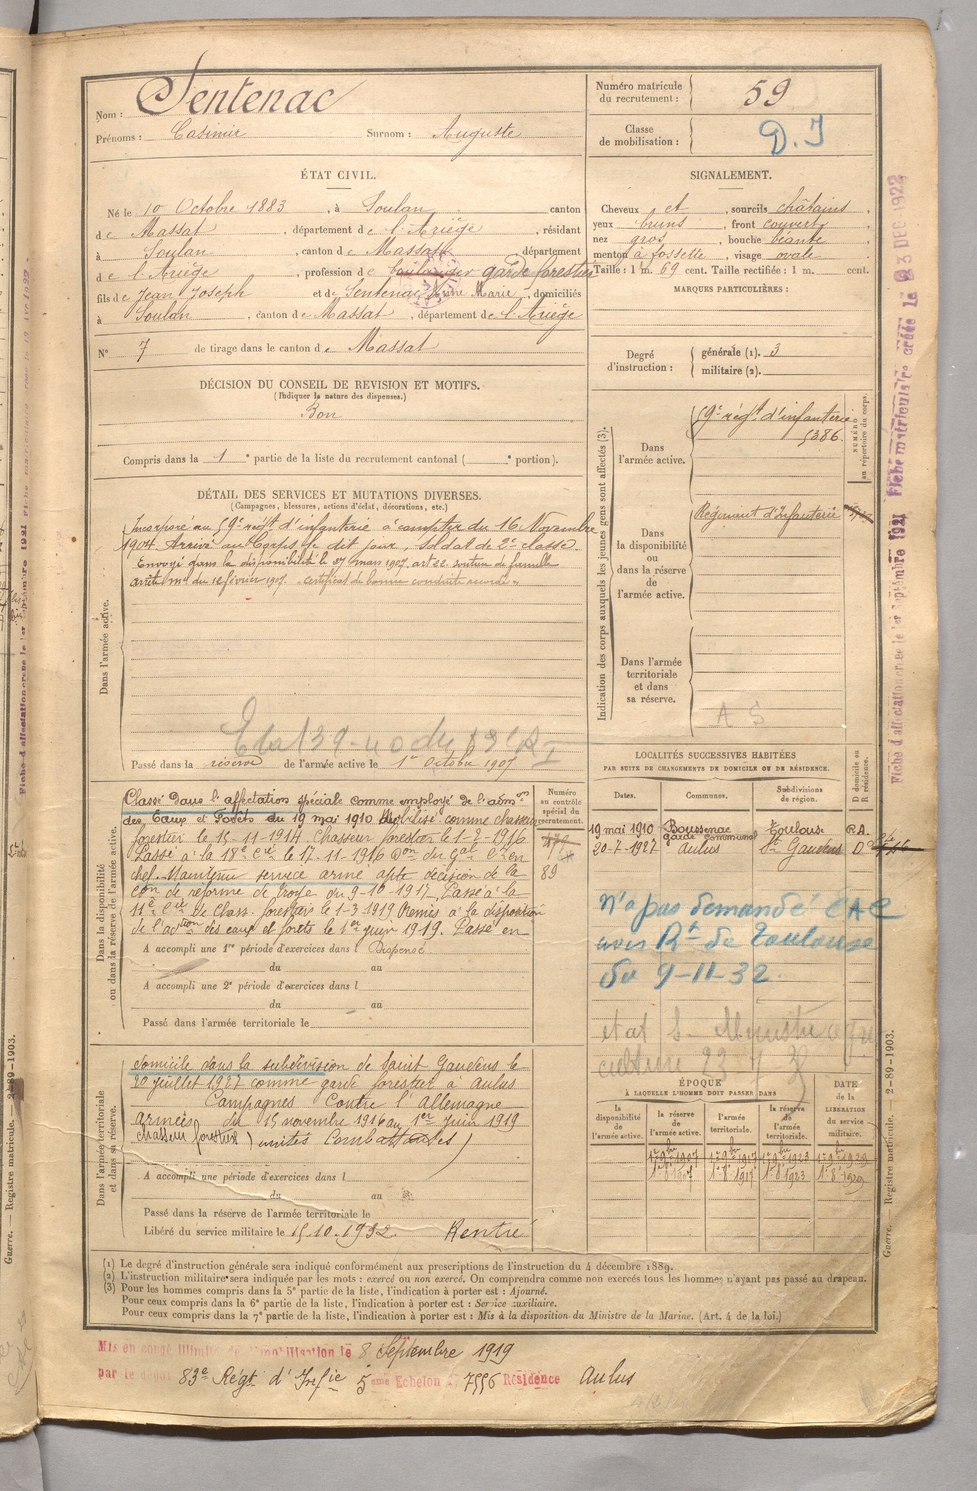 Nom : Sentenac
Prénoms : Casimir Surnom : Auguste
Numéro matricule du recrutement : 59
Classe de mobilisation : D. I
ÉTAT CIVIL.
Né le 10 Octobre 1883, à Soulan, canton
de Massat, département de l'Ariège, résidant
à Soulan, canton de Massat, département
de l'Ariège, profession de boulanger garde forestier
fils de Jean Joseph et de Sentenac Marie, domiciliés
à Soulan, canton de Massat, département de l'Ariège
N° 7 de tirage dans le canton de Massat
SIGNALEMENT.
Cheveux et, sourcils châtains,
yeux bruns, front couvert,
nez gros, bouche béante,
menton à fossette, visage ovale.
Taille : 1 m. 69 cent. Taille rectifiée : 1 m. cent.
MARQUES PARTICULIÈRES :
Degré d'instruction : générale (1). 3
militaire (2).
DÉCISION DU CONSEIL DE REVISION ET MOTIFS.
(Indiquer la nature des dispenses.)
Bon
Compris dans la 1e partie de la liste du recrutement cantonal ( e portion).
DÉTAIL DES SERVICES ET MUTATIONS DIVERSES.
(Campagnes, blessures, actions d'éclat, décorations, etc.)
Dans l'armée active.
Incorporé au 59e régt d'infanterie à compter du 16 Novembre
1904. Arrivé au Corps le dit jour, soldat de 2e classe.
Envoyé dans la disponibilité le 27 mars 1907, art 22. soutien de famille
arrêté mel du 16 février 1907. certificat de bonne conduite accordé
Passé dans la réserve de l'armée active le 1er Octobre 1907
Indication des corps auxquels les jeunes gens sont affectés (3).
Dans l'armée active. 59e régt d'infanterie
5386.
NUMÉRO au répertoire du corps.
Dans la disponibilité ou dans la réserve de l'armée active. Régiment d'Infanterie
Dans l'armée territoriale et dans sa réserve.
A S
Dans la disponibilité ou dans la réserve de l'armée active.
Classé dans l'affectation spéciale comme employé de l'admon
des Eaux et Forêts du 19 mai 1910 Mobilisé comme chasseur
forestier le 15-11-1914 Chasseur forestier le 1-2-1916
Passé à la 18e Cie le 17-11-1916 Don du Gal Ct en
chef. Maintenu service armé apte décision de la
Con de réforme de Troyes du 9-10-1917. Passé à la
11e Cie de Chass. forestiers le 1-3-1919 Remis à la disposition
de l'admon des eaux et forêts le 1er juin 1919. Passé en
Numéro au contrôle spécial du recrutement.
89
A accompli une 1re période d'exercices dans l Dispensé
du au
A accompli une 2e période d'exercices dans l
du au
Passé dans l'armée territoriale le
LOCALITÉS SUCCESSIVES HABITÉES
PAR SUITE DE CHANGEMENTS DE DOMICILE OU DE RÉSIDENCE.
Dates. Communes. Subdivisions de région. D domicile ou R résidence.
19 mai 1910 Boussenac garde communal Toulouse R.A.
20-7-1927 Aulus St Gaudens D
n'a pas demandé CAC
avis Rt de Toulouse
du 9-11-32.
Dans l'armée territoriale et dans sa réserve.
domicile dans la subdivision de Saint Gaudens le
20 juillet 1927 comme garde forestier à Aulus
Campagnes Contre l'Allemagne
armées du 15 novembre 1916 au 1er juin 1919
chasseur forestier (unités Combattantes)
A accompli une période d'exercices dans l
du au
Passé dans la réserve de l'armée territoriale le
Libéré du service militaire le 15-10-1932 Rentré
ÉPOQUE
À LAQUELLE L'HOMME DOIT PASSER DANS
la disponibilité de l'armée active. la réserve de l'armée active. l'armée territoriale. la réserve de l'armée territoriale. DATE de la LIBÉRATION du service militaire.
1er 9bre 1907 1er 9bre 1917 1er 9bre 1923 1er 9bre 1929
1er 8bre 1907 1er 8bre 1917 1er 8bre 1923 1er 8bre 1929
(1) Le degré d'instruction générale sera indiqué conformément aux prescriptions de l'instruction du 4 décembre 1889.
(2) L'instruction militaire sera indiquée par les mots : exercé ou non exercé. On comprendra comme non exercés tous les hommes n'ayant pas passé au drapeau.
(3) Pour les hommes compris dans la 5e partie de la liste, l'indication à porter est : Ajourné.
Pour ceux compris dans la 6e partie de la liste, l'indication à porter est : Service auxiliaire.
Pour ceux compris dans la 7e partie de la liste, l'indication à porter est : Mis à la disposition du Ministre de la Marine. (Art. 4 de la loi.)
Mis en congé illimité de démobilisation le 8 Septembre 1919
par le dépôt 83e Régt d'Infie 5eme Echelon N° 7556 Résidence Aulus
Guerre. — Registre matricule. — 2-89-1903.
Guerre. — Registre matricule. — 2-89-1903.
Fiche d'affectation créée le 1er Septembre 1921 Fiche matriculaire créée le 23 DEC 1922